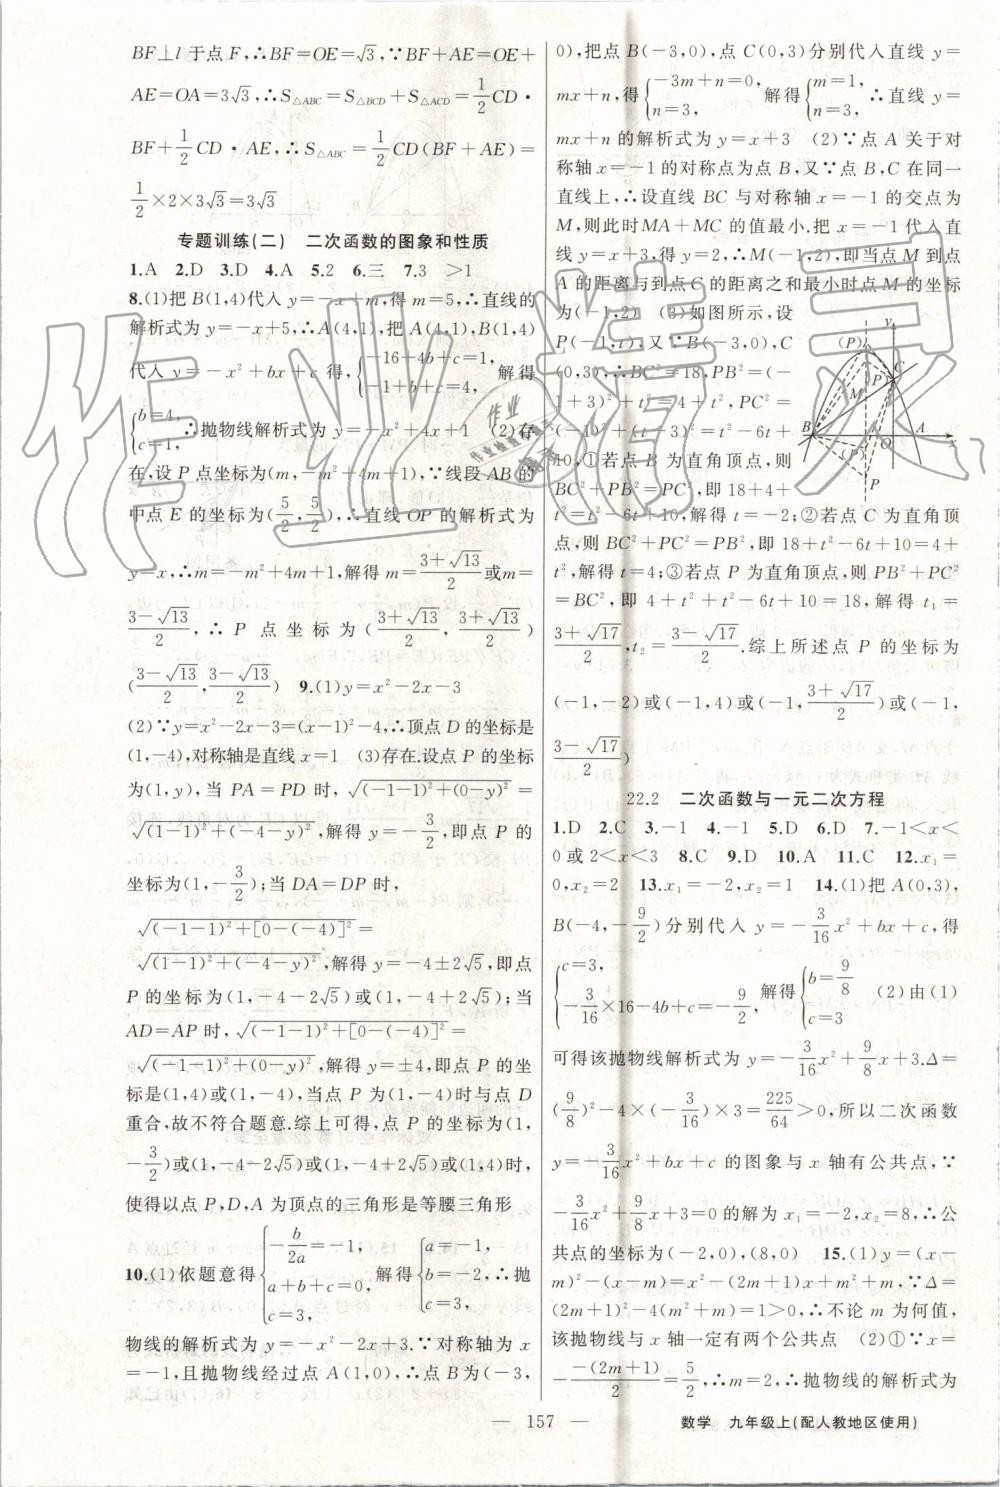 BF⊥l于点F,∴BF=OE=√3,∵BF+AE=OE+
AE=OA=3√3,∴S△ABC=S△BCD+S△ACD=1/2CD·
BF+1/2CD·AE,∴S△ABC=1/2CD(BF+AE)=
1/2×2×3√3=3√3
专题训练(二) 二次函数的图象和性质
1.A 2.D 3.D 4.A 5.2 6.三 7.3 >1
8.(1)把B(1,4)代入y=-x+m,得m=5,∴直线的
解析式为y=-x+5,∴A(4,1),把A(4,1),B(1,4)
代入y=-x²+bx+c得,{-16+4b+c=1, -1+b+c=4, 解得
{b=4, c=1, ∴抛物线解析式为y=-x²+4x+1 (2)存
在,设P点坐标为(m,-m²+4m+1),∵线段AB的
中点E的坐标为(5/2,5/2),∴直线OP的解析式为
y=x,∴m=-m²+4m+1,解得m=(3+√13)/2或m=
(3-√13)/2,∴P点坐标为((3+√13)/2,(3+√13)/2)
((3-√13)/2,(3-√13)/2) 9.(1)y=x²-2x-3
(2)∵y=x²-2x-3=(x-1)²-4,∴顶点D的坐标是
(1,-4),对称轴是直线x=1 (3)存在.设点P的坐标
为(1,y),当PA=PD时,√((-1-1)²+(0-y)²)=
√((1-1)²+(-4-y)²),解得y=-3/2,即点P的
坐标为(1,-3/2);当DA=DP时,
√((-1-1)²+[0-(-4)]²)=
√((1-1)²+(-4-y)²),解得y=-4±2√5,即点
P的坐标为(1,-4-2√5)或(1,-4+2√5);当
AD=AP时,√((-1-1)²+[0-(-4)]²)=
√((-1-1)²+(0-y)²),解得y=±4,即点P的坐
标是(1,4)或(1,-4),当点P为(1,-4)时与点D
重合,故不符合题意.综上可得,点P的坐标为(1,
-3/2)或(1,-4-2√5)或(1,-4+2√5)或(1,4)时,
使得以点P,D,A为顶点的三角形是等腰三角形
10.(1)依题意得{-b/2a=-1, a+b+c=0, c=3, 解得{a=-1, b=-2, c=3, ∴抛
物线的解析式为y=-x²-2x+3.∵对称轴为x
=-1,且抛物线经过点A(1,0),∴点B为(-3,
0),把点B(-3,0),点C(0,3)分别代入直线y=
mx+n,得{-3m+n=0, n=3, 解得{m=1, n=3, ∴直线y=
mx+n的解析式为y=x+3 (2)∵点A关于对
称轴x=-1的对称点为点B,又∵点B,C在同一
直线上,∴设直线BC与对称轴x=-1的交点为
M,则此时MA+MC的值最小.把x=-1代入直
线y=x+3,得y=2,∴M(-1,2),即当点M到点
A的距离与到点C的距离之和最小时点M的坐标
为(-1,2) (3)如图所示,设
P(-1,t),又∵B(-3,0),C
(0,3),∴BC²=18,PB²=(-
1+3)²+t²=4+t²,PC²=
(-1)²+(t-3)²=t²-6t+
10,①若点B为直角顶点,则
BC²+PB²=PC²,即18+4+
t²=t²-6t+10,解得t=-2;②若点C为直角顶
点,则BC²+PC²=PB²,即18+t²-6t+10=4+
t²,解得t=4;③若点P为直角顶点,则PB²+PC²=
BC²,即4+t²+t²-6t+10=18,解得t₁=
(3+√17)/2,t₂=(3-√17)/2.综上所述点P的坐标为
(-1,-2)或(-1,4)或(-1,(3+√17)/2)或(-1,
(3-√17)/2)
y
(P)
P
C
M
B
O
A
x
P
22.2 二次函数与一元二次方程
1.D 2.C 3.-1 4.-1 5.D 6.D 7.-1<x<
0或2<x<3 8.C 9.D 10.A 11.C 12.x₁=
0,x₂=2 13.x₁=-2,x₂=1 14.(1)把A(0,3),
B(-4,-9/2)分别代入y=-3/16x²+bx+c,得
{c=3, -3/16×16-4b+c=-9/2, 解得{b=9/8 c=3 (2)由(1)
可得该抛物线解析式为y=-3/16x²+9/8x+3.Δ=
(9/8)²-4×(-3/16)×3=225/64>0,所以二次函数
y=-3/16x²+bx+c的图象与x轴有公共点,∵
-3/16x²+9/8x+3=0的解为x₁=-2,x₂=8,∴公
共点的坐标为(-2,0),(8,0) 15.(1)y=(x-
m)²-(x-m)=x²-(2m+1)x+m²+m,∵Δ=
(2m+1)²-4(m²+m)=1>0,∴不论m为何值,
该抛物线与x轴一定有两个公共点 (2)①∵x=
-(-(2m+1))/2=5/2,∴m=2,∴抛物线的解析式为
— 157 — 数学 九年级上(配人教地区使用)
作业精灵